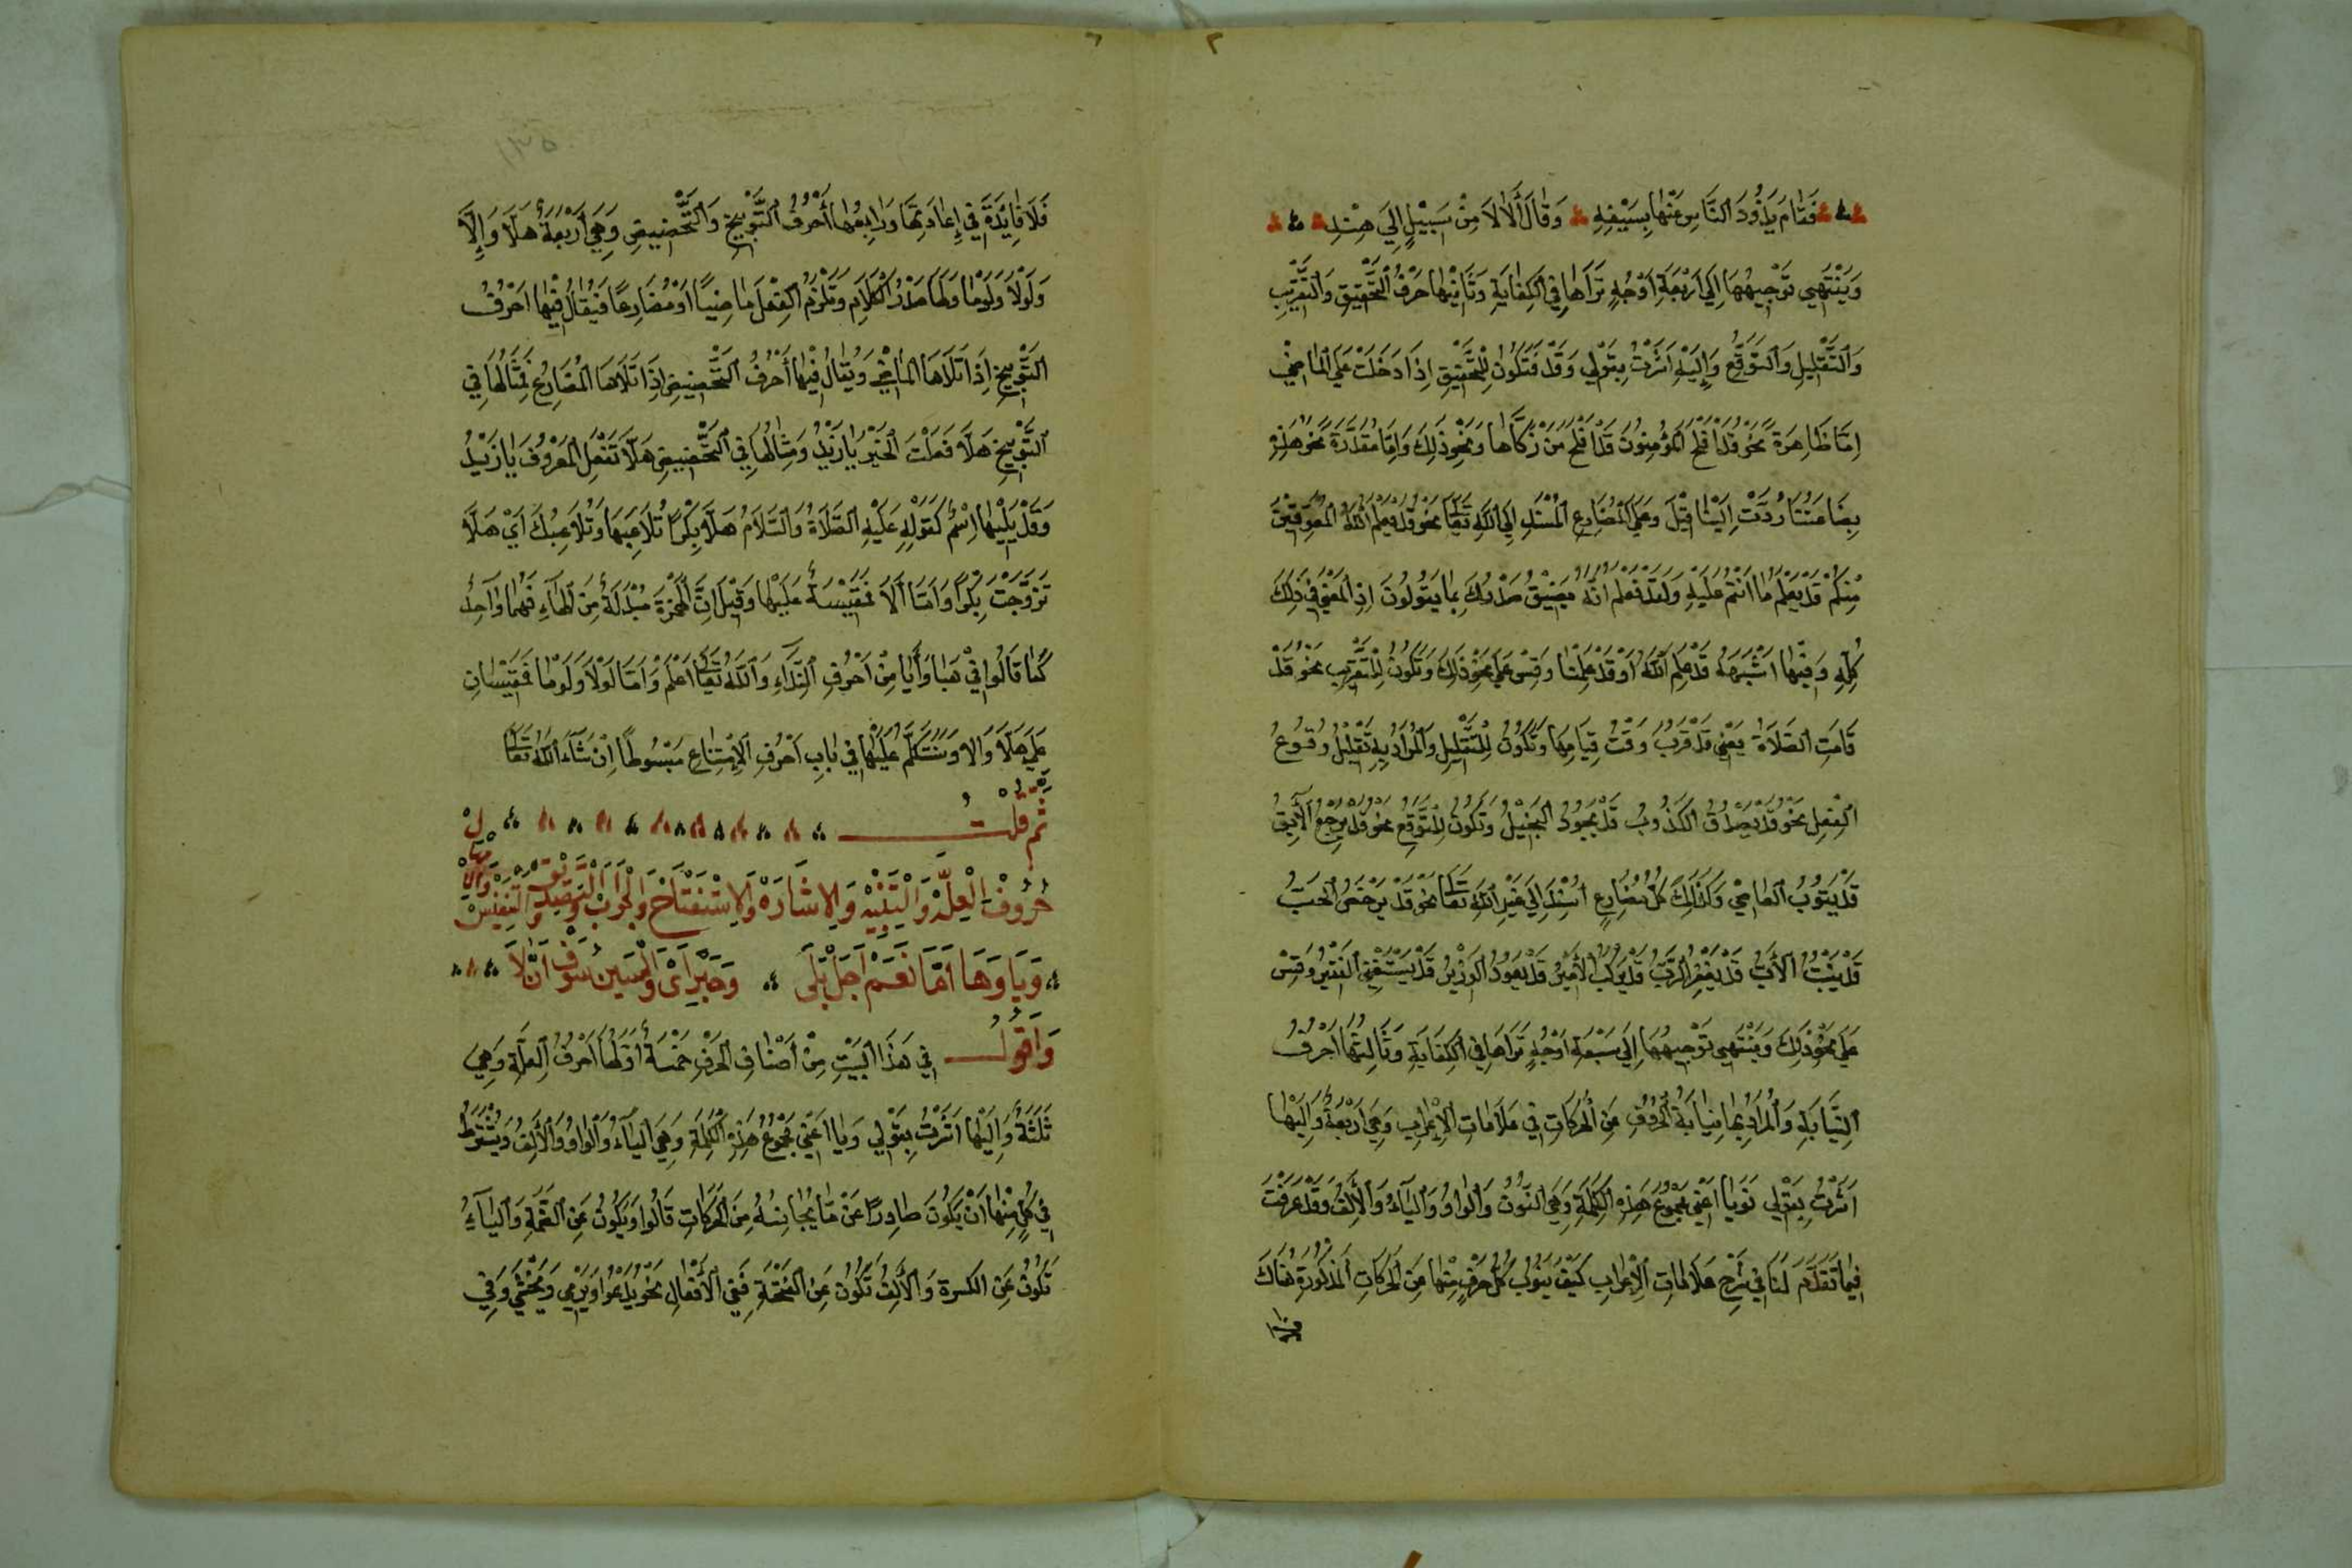 فَقَامَ يَذُودُ النَّاسَ عَنْهَا بِسَيْفِهِ وَقَالَ أَلَا لَا مِنْ سَبِيْلٍ إِلَى هِنْدِ
وَيَنْتَهِي تَوْجِيهُهَا إِلَى أَرْبَعَةِ أَوْجُهٍ تَرَاهَا فِي الكِفَايَةِ وَثَانِيْهَا حَرْفُ التَّحْقِيْقِ وَالتَّقْرِيْبِ
وَالتَّقْلِيلِ وَالتَّوَقُّعِ وَإِلَيْهِ أَشَرْتُ بِقَوْلِي وَقَدْ فَتَكُونُ لِلتَّحْقِيْقِ اِذَا دَخَلَتْ عَلَى المَاضِي
اِمَّا ظَاهِرَةً نَحْوُ قَدْ اَفْلَحَ المُؤْمِنُونَ قَدْ اَفْلَحَ مَنْ زَكَّاهَا وَنَحْوِ ذَلِكَ وَاِمَّا مُقَدَّرَةً نَحْوُ هَذِهِ
بِضَاعَتُنَا رُدَّتْ اِلَيْنَا قِيْلَ وَعَلَى المُضَارِعِ المُسْنَدِ اِلَى اللَّهِ تَعَالَى نَحْوُ قَدْ يَعْلَمُ اللَّهُ المُعَوِّقِيْنَ
مِنْكُمْ قَدْ يَعْلَمُ مَا اَنْتُمْ عَلَيْهِ وَلَقَدْ نَعْلَمُ اَنَّهُ يَضِيْقُ صَدْرُكَ بِمَا يَقُولُونَ اِذِ المَعْنَى فِي ذَلِكَ
كُلِّهِ وَفِيْمَا اَشْبَهَهُ قَدْ عَلِمَ اللَّهُ اَوْ قَدْ عَلِمْنَا وَقِسْ عَلَى نَحْوِ ذَلِكَ وَتَكُونُ لِلتَّقْرِيْبِ نَحْوُ قَدْ
قَامَتِ الصَّلَاةُ يَعْنِي قَدْ قَرُبَ وَقْتُ قِيَامِهَا وَتَكُونُ لِلتَّقْلِيْلِ وَالمُرَادُ بِهِ تَقْلِيْلُ وُقُوعِ
الفِعْلِ نَحْوُ قَدْ يَصْدُقُ الكَذُوبُ قَدْ يَجُودُ البَخِيْلُ وَتَكُونُ لِلتَّوَقُّعِ نَحْوُ قَدْ يَرْجِعُ الآبِقُ
قَدْ يَتُوبُ العَاصِي وَكَذَلِكَ كُلُّ مُضَارِعٍ اُسْنِدَ اِلَى غَيْرِ اللَّهِ تَعَالَى نَحْوُ قَدْ يَرْخَصُ الحَبُّ
قَدْ يَنْبُتُ الأَبُّ قَدْ يَغْفِرُ الرَّبُّ قَدْ يَرْكَبُ الأَمِيْرُ قَدْ يَعُودُ الوَزِيْرُ قَدْ يَسْتَغْنِي الفَقِيْرُ وَقِسْ
عَلَى نَحْوِ ذَلِكَ وَيَنْتَهِي تَوْجِيْهُهَا اِلَى سَبْعَةِ اَوْجُهٍ تَرَاهَا فِي الكِفَايَةِ وَثَالِثُهَا اَحْرُفُ
النِّيَابَةِ وَالمُرَادُ بِهَا نِيَابَةُ الحُرُوفِ عَنِ الحَرَكَاتِ فِي عَلَامَاتِ الاِعْرَابِ وَهِيَ اَرْبَعَةٌ وَاِلَيْهَا
اَشَرْتُ بِقَوْلِي نَوَيَا اَعْنِي مَجْمُوعَ هَذِهِ الكَلِمَةِ وَهِيَ النُّونُ وَالوَاوُ وَاليَاءُ وَالأَلِفُ وَقَدْ عَرَفْتَ
فِيْمَا تَقَدَّمَ لَنَا فِي شَرْحِ عَلَامَاتِ الاِعْرَابِ كَيْفَ يَنُوبُ كُلُّ حَرْفٍ مِنْهَا عَنِ الحَرَكَاتِ المَذْكُورَةِ هُنَاكَ
فلا
١٣٥
فَلَا فَائِدَةَ فِي إِعَادَتِهَا وَرَابِعُهَا أَحْرُفُ التَّوْبِيخِ وَالتَّحْضِيضِ وَهِيَ أَرْبَعَةٌ هَلَّا وَإِلَّا
وَلَوْلَا وَلَوْمَا وَلَهَا صَدْرُ الكَلَامِ وَتَلْزَمُ الفِعْلَ مَاضِيًا اَوْ مُضَارِعًا فَيُقَالُ فِيْهَا اَحْرُفُ
التَّوْبِيخِ اِذَا تَلَاهَا المَاضِي وَيُقَالُ فِيْهَا أَحْرُفُ التَّحْضِيضِ اِذَا تَلَاهَا المُضَارِعُ فَمِثَالُهَا فِي
التَّوْبِيخِ هَلَّا فَعَلْتَ الخَيْرَ يَا زَيْدُ وَمِثَالُهَا فِي التَّحْضِيضِ هَلَّا تَفْعَلُ المَعْرُوفَ يَا زَيْدُ
وَقَدْ يَلِيْهَا اِسْمٌ كَقَوْلِهِ عَلَيْهِ الصَّلَاةُ وَالسَّلَامُ هَلَّا بِكْرًا تُلَاعِبُهَا وَتُلَاعِبُكَ اَيْ هَلَّا
تَزَوَّجْتَ بِكْرًا وَاَمَّا اَلَّا فَمَقِيْسَةٌ عَلَيْهَا وَقِيْلَ اِنَّ الهَمْزَةَ مُبْدَلَةٌ مِنَ الهَاءِ فَهُمَا وَاحِدٌ
كَمَا قَالُوا فِي هَيَا وَأَيَا مِنْ اَحْرُفِ النِّدَاءِ وَاللَّهُ تَعَالَى اَعْلَمُ وَاَمَّا لَوْلَا وَلَوْمَا فَمَقِيْسَانِ
عَلَى هَلَّا وَالا وَسَنَتَكَلَّمُ عَلَيْهَا فِي بَابِ اَحْرُفِ الاِمْتِنَاعِ مَبْسُوطًا اِنْ شَاءَ اللَّهُ تَعَالَى
ثُمَّ قُلْتُ
حُرُوفُ الْعِلَّةْ وَالتَّنْبِيْهِ وَالاِشَارَهْ وَالاِسْتِفْتَاحِ وَالْجَوَابْ وَالتَّصْدِيْقِ وَالتَّنْفِيْسْ
وَيَا وَهَا اَمَّا نَعَمْ اَجَلْ بَلَى وَجَيْرِ اَىْ وَالسِّيْنُ سَوْفَ اَنْ لَا
وَاَقُولُ فِي هَذَا البَيْتِ مِنْ اَصْنَافِ الحَرْفِ خَمْسَةٌ أَوَّلُهَا اَحْرُفُ العِلَّةِ وَهِيَ
ثَلَثَةٌ وَاِلَيْهَا اَشَرْتُ بِقَوْلِي وَيَا اَعْنِي مَجْمُوعَ هَذِهِ الكَلِمَةِ وَهِيَ اليَاءُ وَالوَاوُ وَالأَلِفُ وَيُشْتَرَطُ
فِي كُلٍّ مِنْهَا اَنْ يَكُونَ صَادِرًا عَنْ مَا يُجَانِسُهُ مِنَ الحَرَكَاتِ فَالْوَاوُ يَكُونُ عَنِ الضَّمَّةِ وَاليَاءُ
تَكُونُ عَنِ الكسرة وَالأَلِفُ تَكُونُ عَنِ الفَتْحَةِ فَفِي الأَفْعَالِ نَحْوُ يَدْعُوا وَيَرْمِي وَيَخْشَى وَفِي